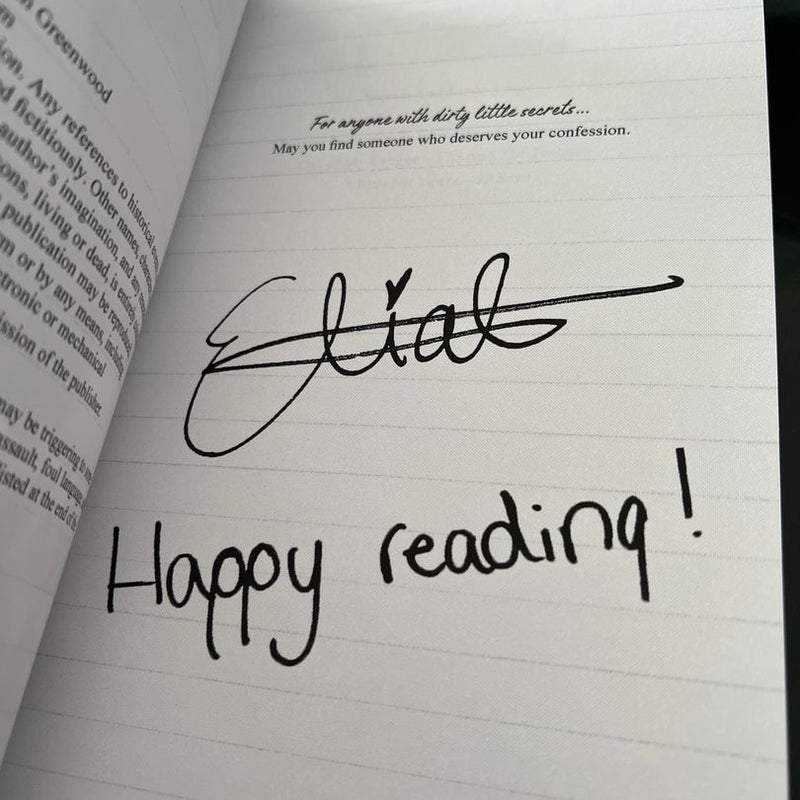 Greenwood
ion. Any references to historical
d fictitiously. Other names,
author's imagination, and any
ons, living or dead, is entirely
publication may be reproduced
m or by any means, including
ctronic or mechanical
ission of the publisher.
may be triggering to
assault, foul language,
listed at the end of
For anyone with dirty little secrets...
May you find someone who deserves your confession.
Eliah
Happy reading!